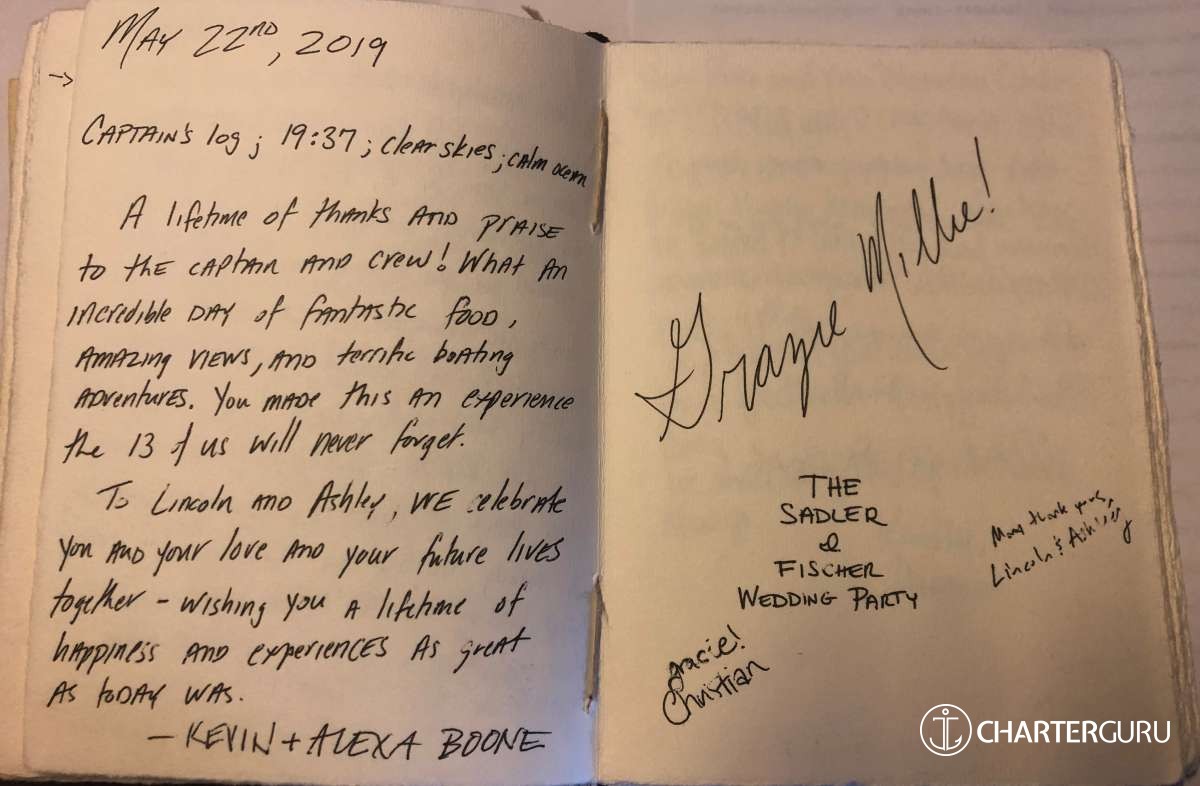 May 22nd, 2019
→
Captain's log ; 19:37 ; clear skies ; calm ocean
A lifetime of thanks and praise
to the captain and crew! What an
incredible day of fantastic food,
amazing views, and terrific boating
adventures. You made this an experience
the 13 of us will never forget.
To Lincoln and Ashley, we celebrate
you and your love and your future lives
together – wishing you a lifetime of
happiness and experiences as great
as today was.
– Kevin + Alexa Boone
Grazie Mille!
THE
SADLER
&
FISCHER
WEDDING PARTY
Many thank yous,
Lincoln & Ashley
gracie!
Christian
CHARTERGURU